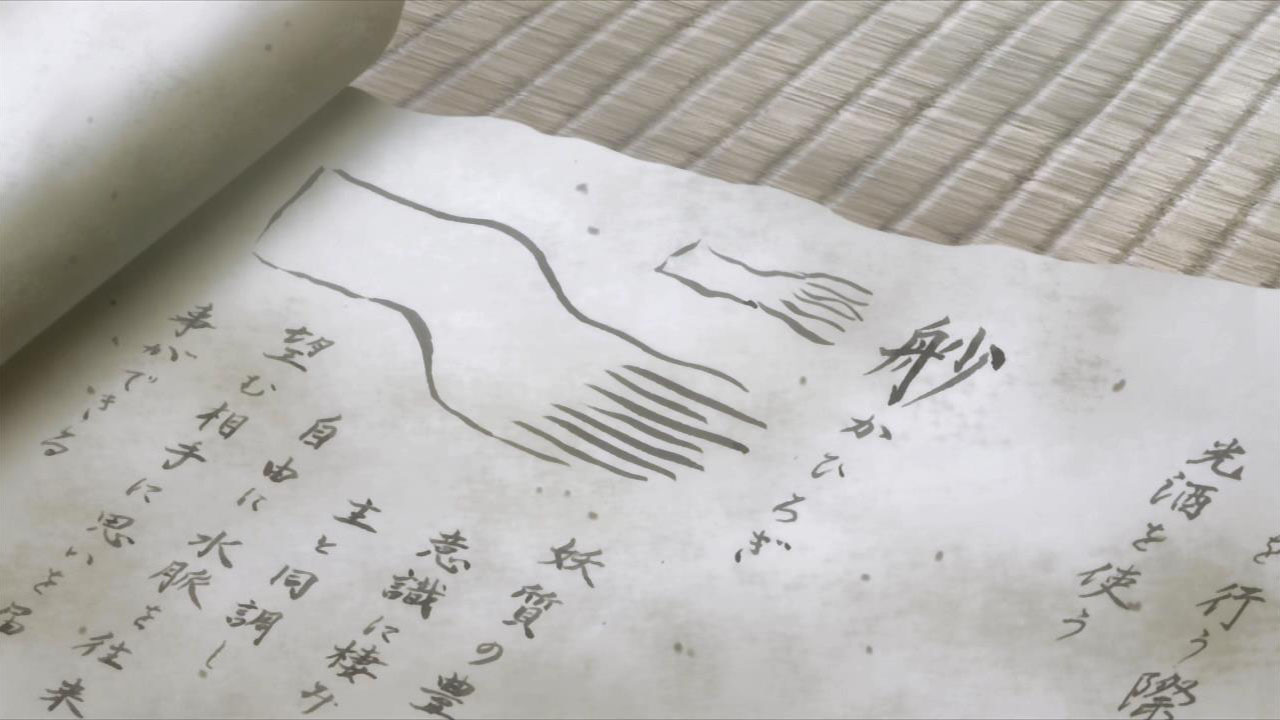 を行う際
光酒を使う
かひろぎ
妖質の豊
意識に棲み
主と同調し
自由に水脈を往来
望む相手に思いを届
事ができる